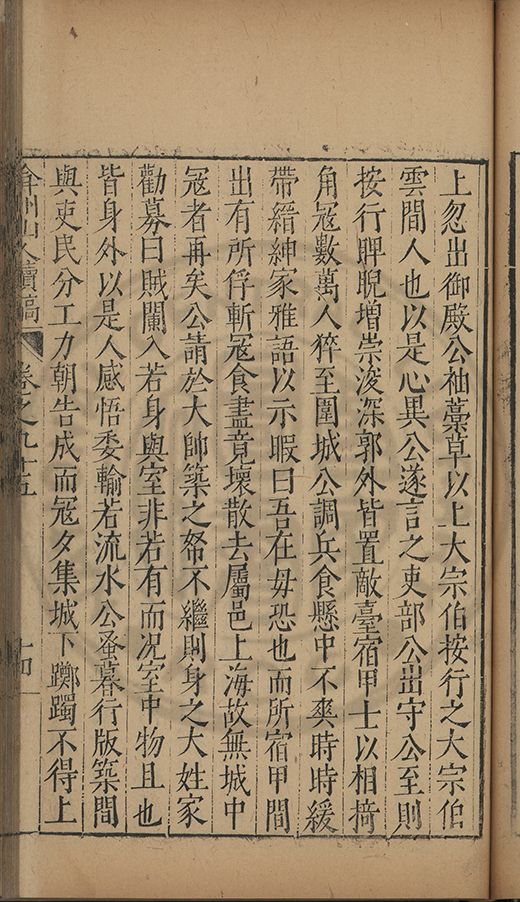 上忽出御殿公袖藁草以上大宗伯按行之大宗伯
雲間人也以是心異公遂言之吏部公出守公至則
按行睥睨增崇浚深郭外皆置敵臺宿甲士以相掎
角寇數萬人猝至圍城公調兵食懸中不爽時時緩
帶縉紳家雅語以示暇曰吾在毋恐也而所宿甲間
出有所俘斬寇食盡竟壞散去屬邑上海故無城中
寇者再矣公請於大帥築之帑不繼則身之大姓家
勸募曰賊闌入若身與室非若有而况室中物且也
皆身外以是人感悟委輸若流水公蚤暮行版築間
與吏民分工力朝告成而寇夕集城下躑躅不得上
弇州山人續稿 卷之九十五 十四